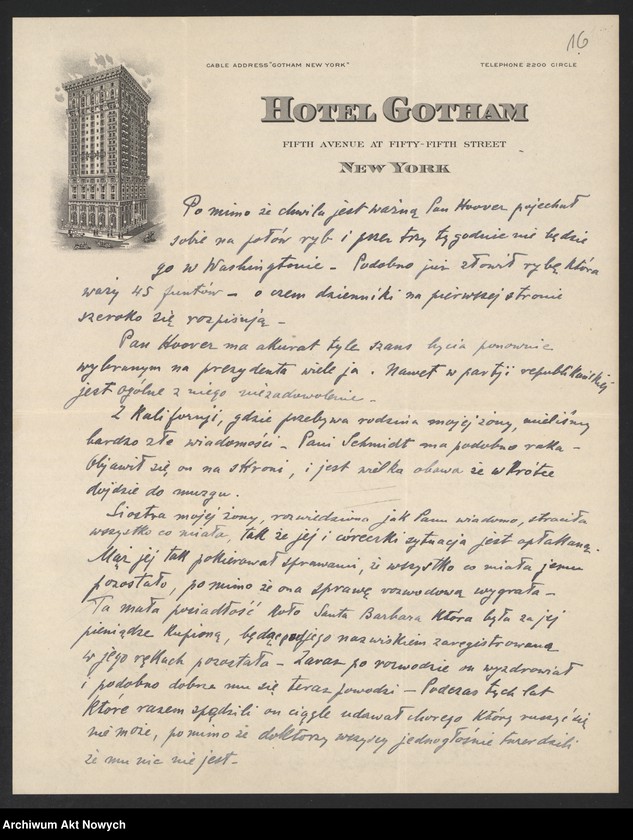 16
CABLE ADDRESS "GOTHAM NEW YORK"
TELEPHONE 2200 CIRCLE
HOTEL GOTHAM
FIFTH AVENUE AT FIFTY-FIFTH STREET
NEW YORK
Po mimo że chwila jest ważną Pan Hoover pojechał
sobie na połów ryb i przez trzy tygodnie nie będzie
go w Washingtonie – Podobno już złowił rybę która
waży 45 funtów – o czem dzienniki na pierwszej stronie
szeroko się rozpisują –
Pan Hoover ma akurat tyle szans bycia ponownie
wybranym na prezydenta wiele ja. Nawet w partji republikańskiej
jest ogólne z niego niezadowolenie –
Z Kalifornji, gdzie przebywa rodzina mojej żony, mieliśmy
bardzo złe wiadomości – Pani Schmidt ma podobno raka –
Objawił się on na skroni, i jest wielka obawa że wkrótce
dojdzie do muzgu.
Siostra mojej żony, rozwiedziona jak Panu wiadomo, straciła
wszystko co miała, tak że jej i córeczki sytuacja jest opłakaną.
Mąż jej tak pokierował sprawami, że wszystko co miała jemu
pozostało, po mimo że ona sprawę rozwodową wygrała –
Ta mała posiadłość koło Santa Barbara która była za jej
pieniądze kupioną, będąc pod jego nazwiskiem zaregistrowaną
w jego rękach pozostała – Zaraz po rozwodzie on wyzdrowiał
i podobno dobrze mu się teraz powodzi – Podczas tych lat
które razem spędzili on ciągle udawał chorego który ruszyć się
nie może, po mimo że doktorzy wszyscy jednogłośnie twierdzili
że mu nic nie jest –
Archiwum Akt Nowych